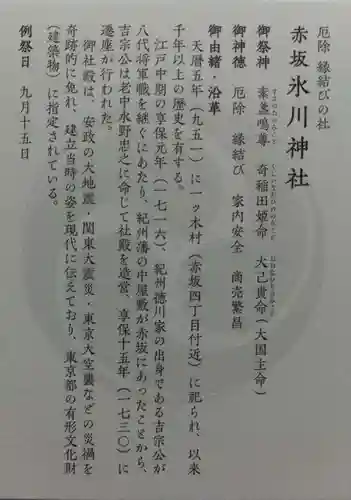 厄除 縁結びの社
赤坂氷川神社
御祭神 素盞嗚尊 奇稲田姫命 大己貴命(大国主命)
すさのおのみこと くしいなだひめのみこと おおなむぢのみこと
御神徳 厄除 縁結び 家内安全 商売繁昌
御由緒・沿革
天暦五年(九五一)に一ツ木村(赤坂四丁目付近)に祀られ、以来
千年以上の歴史を有する。
江戸中期の享保元年(一七一六)、紀州徳川家の出身である吉宗公が
八代将軍職を継ぐにあたり、紀州藩の中屋敷が赤坂にあったことから、
吉宗公は老中水野忠之に命じて社殿を造営、享保十五年(一七三〇)に
遷座が行われた。
御社殿は、安政の大地震・関東大震災・東京大空襲などの災禍を
奇跡的に免れ、建立当時の姿を現代に伝えており、東京都の有形文化財
(建築物)に指定されている。
例祭日 九月十五日